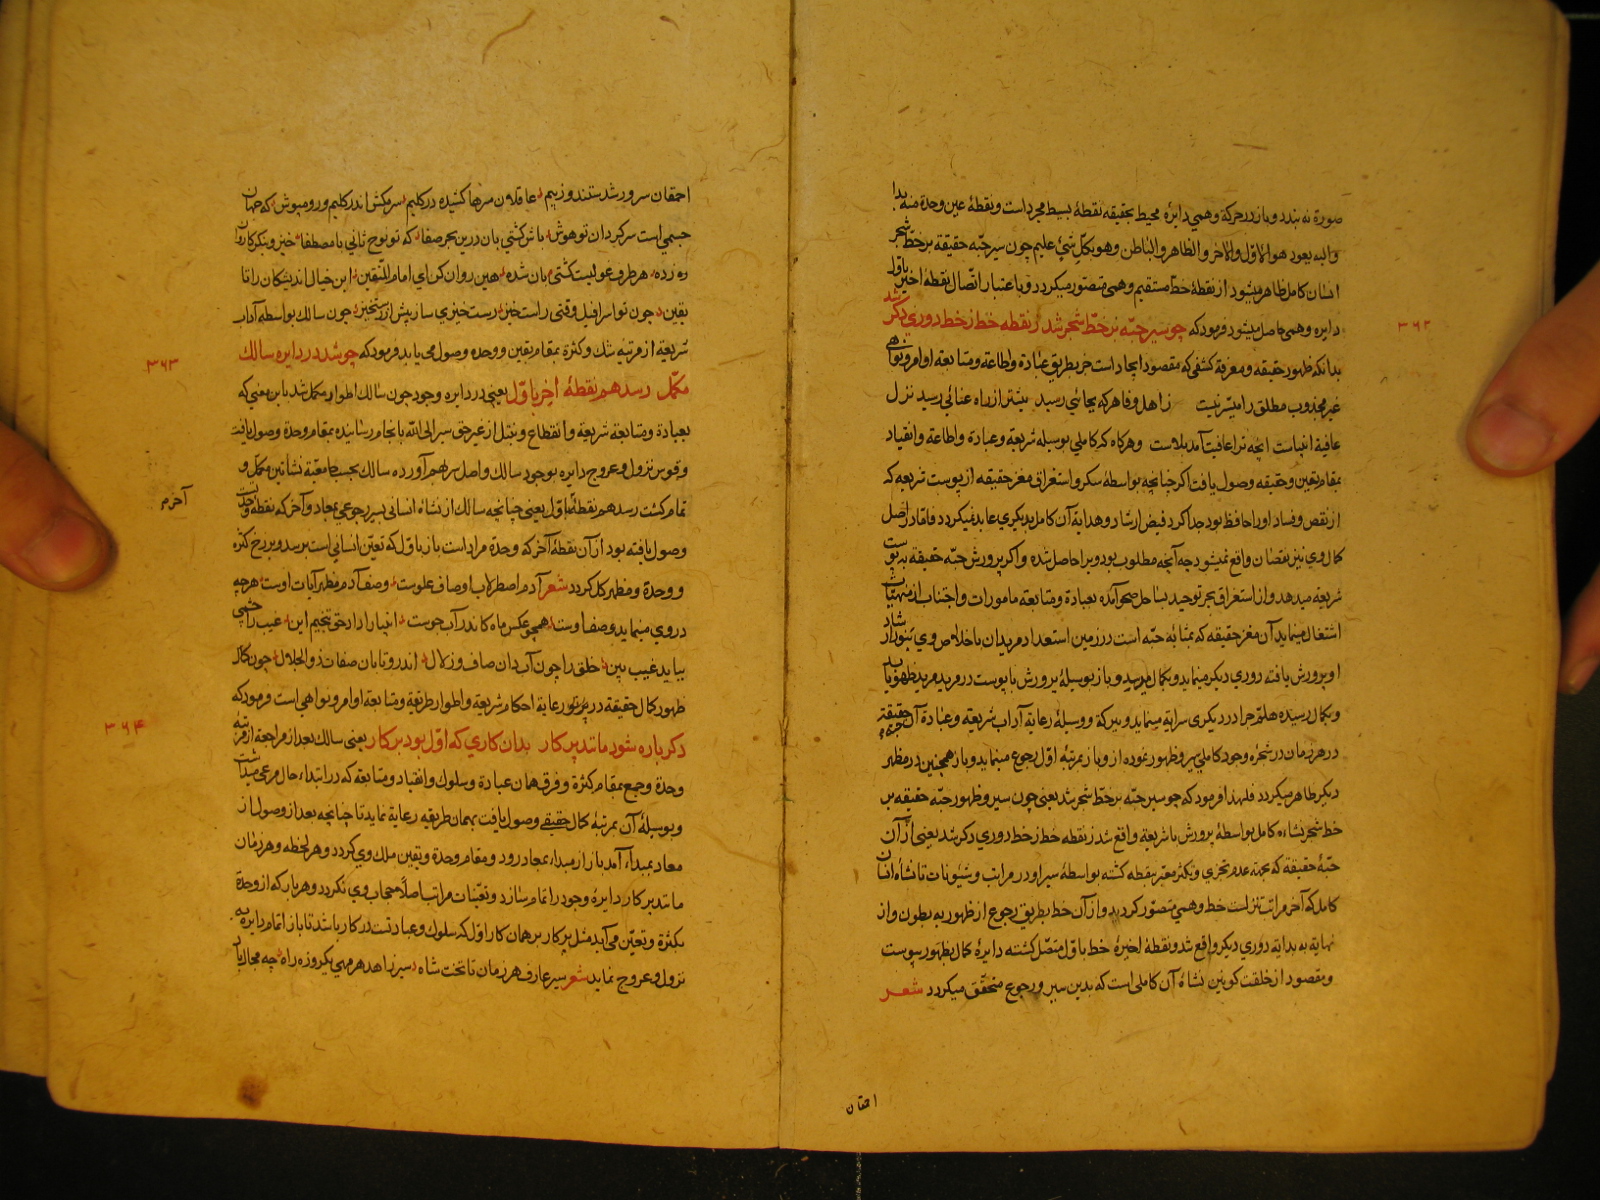 صورة نه بندد و باز در حركة وهمي دايرۀ محيط بحقيقه نقطۀ بسيط مجرد است و نقطۀ عين وحدة منه بدا
واليه يعود هو الاوّل والاخر والظاهر والباطن وهو بكلّ شيء عليم چون سير حبّه حقيقة بر خطّ شجر
انسان كامل ظاهر ميشود از نقطۀ خطّ مستقيم وهمي متصوّر ميكردد و با عتبار اتّصال نقطۀ اخير باوّل
دايره وهمي حاصل ميشود فرمود كه چو سير حبّه بر خطّ شجر شد ز نقطه خط ز خط دوري دكر شد
بدانكه ظهور حقيقه و معرفة كشفي كه مقصود ايجاد است جز بطريق عبادة و اطاعة و متابعة اوامر و نواهي
غير مجذوب مطلق را ميسّر نيست زاهل وفا هر كه بجائي رسيد بيشتر از راه عنائي رسيد نزل
عافية انبياست انچه ترا عافيت آمد بلاست و هر كاه كه كاملي بوسيله شريعة و عبادة و اطاعة و انقياد
بمقام يقين و حقيقه وصول يافت اكر چنانچه بواسطۀ سكر و استغراق مغز حقيقه از پوست شريعه كه
از نقص و فساد او را حافظ بود جدا كردد فيض ارشاد و هداية آن كامل بديكري عايد نميكردد فاما در اصل
كمال وي نيز نقصان واقع نميشود چه آنچه مطلوب بود ويرا حاصل شده و اكر پرورش حبّه حقيقة به پوست
شريعه ميدهد و از استغراق بحر توحيد بساحل صحو آمده بعبادة و متابعة مامورات و اجتناب از منهيّات
اشتغال مينمايد آن مغز حقيقه كه بمثابۀ حبّه است در زمين استعداد مريدان با خلاص وي بنور ارشاد
او پرورش يافته دوري ديكر مينمايد و بكمال ميرسد و باز بوسيلۀ پرورش با پوست در مريد مريد ظهور يابد
و بكمال رسيده هلمّ جرا در ديكري سراية مينمايد و ببركة و وسيلۀ رعاية آداب شريعه و عبادة آن حقيقة
در هر زمان در شجرۀ وجود كاملي سير و ظهور نموده از و باز بمرتبۀ اوّل رجوع مينمايد و باز همچنين در مظهر
ديكر ظاهر ميكردد فلهذا فرمود كه چو سير حبّه بر خطّ شجر شد يعني چون سير و ظهور حبّه حقيقه بر
خط شجر نشاءه كامل بواسطۀ پرورش با شريعة واقع شد ز نقطه خط ز خط دوري دكر شد يعني از آن
حبّۀ حقيقة كه بجهة عدم تجزي و تكثر معبّر بنقطه كشته بواسطۀ سير او در مراتب و شئونات تا نشاۀ انسان
كامل كه آخر مراتب تنزلست خط وهمي متصوّر كرديد و از آن خط بطريق رجوع از ظهور به بطون و از
نهاية به بداية دوري ديكر واقع شد و نقطۀ اخيرۀ خط باوّل متصّل كشته دايرۀ كمال بظهور پيوست
و مقصود از خلقت كونين نشاۀ آن كاملي است كه بدين سير و رجوع متحقّق ميكردد شعر
٣٦٢
احمقان
احمقان سرور شدستند و زبيم عاقلان سرها كشيده در كليم سر مكش اندر كليم و رو مپوش كه جهان
جسمي است سركردان تو هوش باش كشتي بان درين بحر صفا كه تو نوح ثاني يا مصطفا خيز و بنكر كاروان
ره زده هر طرف غوليست كشتي بان شده هين روان كن اي امام المتّقين اين خيال انديشكان را تا
يقين چون تو اسرافيل وقتي راست خيز رست خيزي ساز پيش از رستخيز چون سالك بواسطه آداب
شريعة از مرتبه شك و كثرة بمقام يقين و وحده وصول مي يابد فرمود كه چو شد در دايره سالك
مكمّل رسد هم نقطۀ آخر باوّل يعني در دايره وجود چون سالك اطوار مكمل شد باين معني كه
بعبادة و متابعة شريعة و انقطاع و تبتل از غير حق سير الي الله بانجام رسانيده بمقام وحدة وصول يافت
و قوس نزول و عروج دايره بوجود سالك واصل سر بهم آورده سالك بحسب جامعيّة نشاتين مكمّل و
تمام كشت رسد هم نقطۀ باوّل يعني چنانچه سالك از نشاۀ انساني بسير رجوعي بمعاد و آخر كه نقطۀ وحدتست
وصول يافته بود از آن نقطۀ آخر كه وحدة مراد است باز باوّل كه تعيّن انساني است برسد و برزخ كثرة
و وحدة و مظهر كل كردد شعر آدم اصطرلاب اوصاف علوست وصف آدم مظهر آيات اوست هرچه
در وي مينمايد وصف اوست همچو عكس ماه كاندر آب جوست انبيا را داد حق تنجيم اين غيب را چشمي
ببايد غيب بين خلق را چون آب دان صاف و زلال اندرو تابان صفات ذو الجلال چون كمال
ظهور كمال حقيقة در پرتو رعاية احكام شريعة و اطوار طريقة و متابعة اوامر و نواهي است فرمود كه
دكر باره شود مانند پركار بدان كاري كه اوّل بود بر كار يعني سالك بعد از مراجعة از مرتبه
وحدة و جمع بمقام كثرة و فرق همان عبادة و سلوك و انقياد و متابعة كه در ابتداء حال مرعي ميداشت
و بوسيلۀ آن بمرتبۀ كمال حقيقي وصول يافت بهمان طريقه رعاية نمايد تا چنانچه بعد از وصول از
معاد بمبداء آمد باز از مبداء بمعاد رود و مقام وحدة و يقين ملك وي كردد و هر لحظه و هر زمان
مانند پركار دايرۀ وجود را تمام سازد و تعيّنات مراتب اصلاً حجاب وي نكردد و هر بار كه از وحدة
بكثرة و تعيّن مي آيد مثل پركار بر همان كار اوّل كه سلوك و عبادتست در كار باشد تا باز اتمام دايره به
نزول و عروج نمايد شعر سير عارف هر زمان تا تخت شاه سير زاهد هر مهي يكروزه راه چه مجال باي
٣٦٣
آخرم
٣٦٤